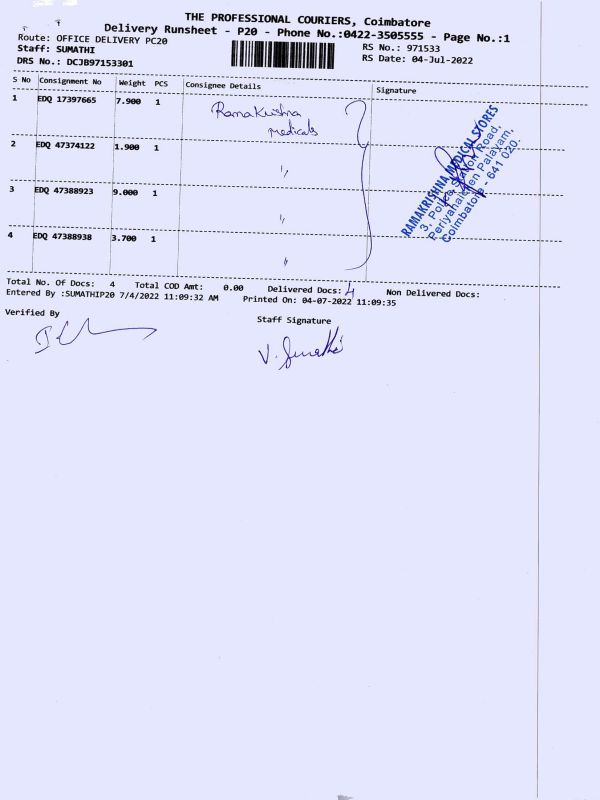 THE PROFESSIONAL COURIERS, Coimbatore
Delivery Runsheet - P20 - Phone No.:0422-3505555 - Page No.:1
Route: OFFICE DELIVERY PC20
RS No.: 971533
Staff: SUMATHI
RS Date: 04-Jul-2022
DRS No.: DCJB97153301
S No Consignment No Weight PCS Consignee Details Signature
1 EDQ 17397665 7.900 1 Ramakrishna
Medicals
2 EDQ 47374122 1.900 1 "
3 EDQ 47388923 9.000 1 "
4 EDQ 47388938 3.700 1 "
RAMAKRISHNA MEDICAL STORES
3, Police Station Road,
Periyanaicken Palayam,
Coimbatore - 641 020.
Total No. Of Docs: 4 Total COD Amt: 0.00 Delivered Docs: 4 Non Delivered Docs:
Entered By :SUMATHIP20 7/4/2022 11:09:32 AM Printed On: 04-07-2022 11:09:35
Verified By
Staff Signature
V. Sumathi